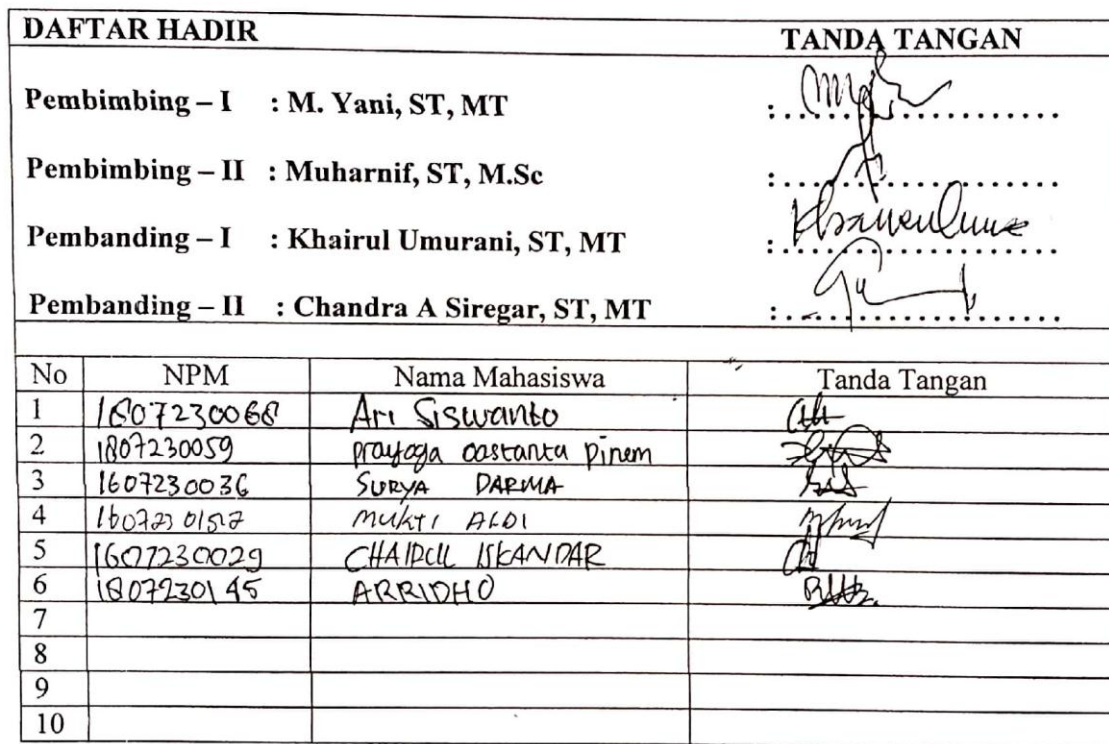 DAFTAR HADIR TANDA TANGAN
Pembimbing – I : M. Yani, ST, MT : ....................
Pembimbing – II : Muharnif, ST, M.Sc : ....................
Pembanding – I : Khairul Umurani, ST, MT : ....................
Pembanding – II : Chandra A Siregar, ST, MT : ....................
No NPM Nama Mahasiswa Tanda Tangan
1 Ari Siswanto
2 1807230059 prayoga Pinem
3 1607230036 SURYA DARMA
4 MUKTI ALDI
5 1607230029 CHAIRUL ISKANDAR
6 1807230145 ARRIDHO
7
8
9
10